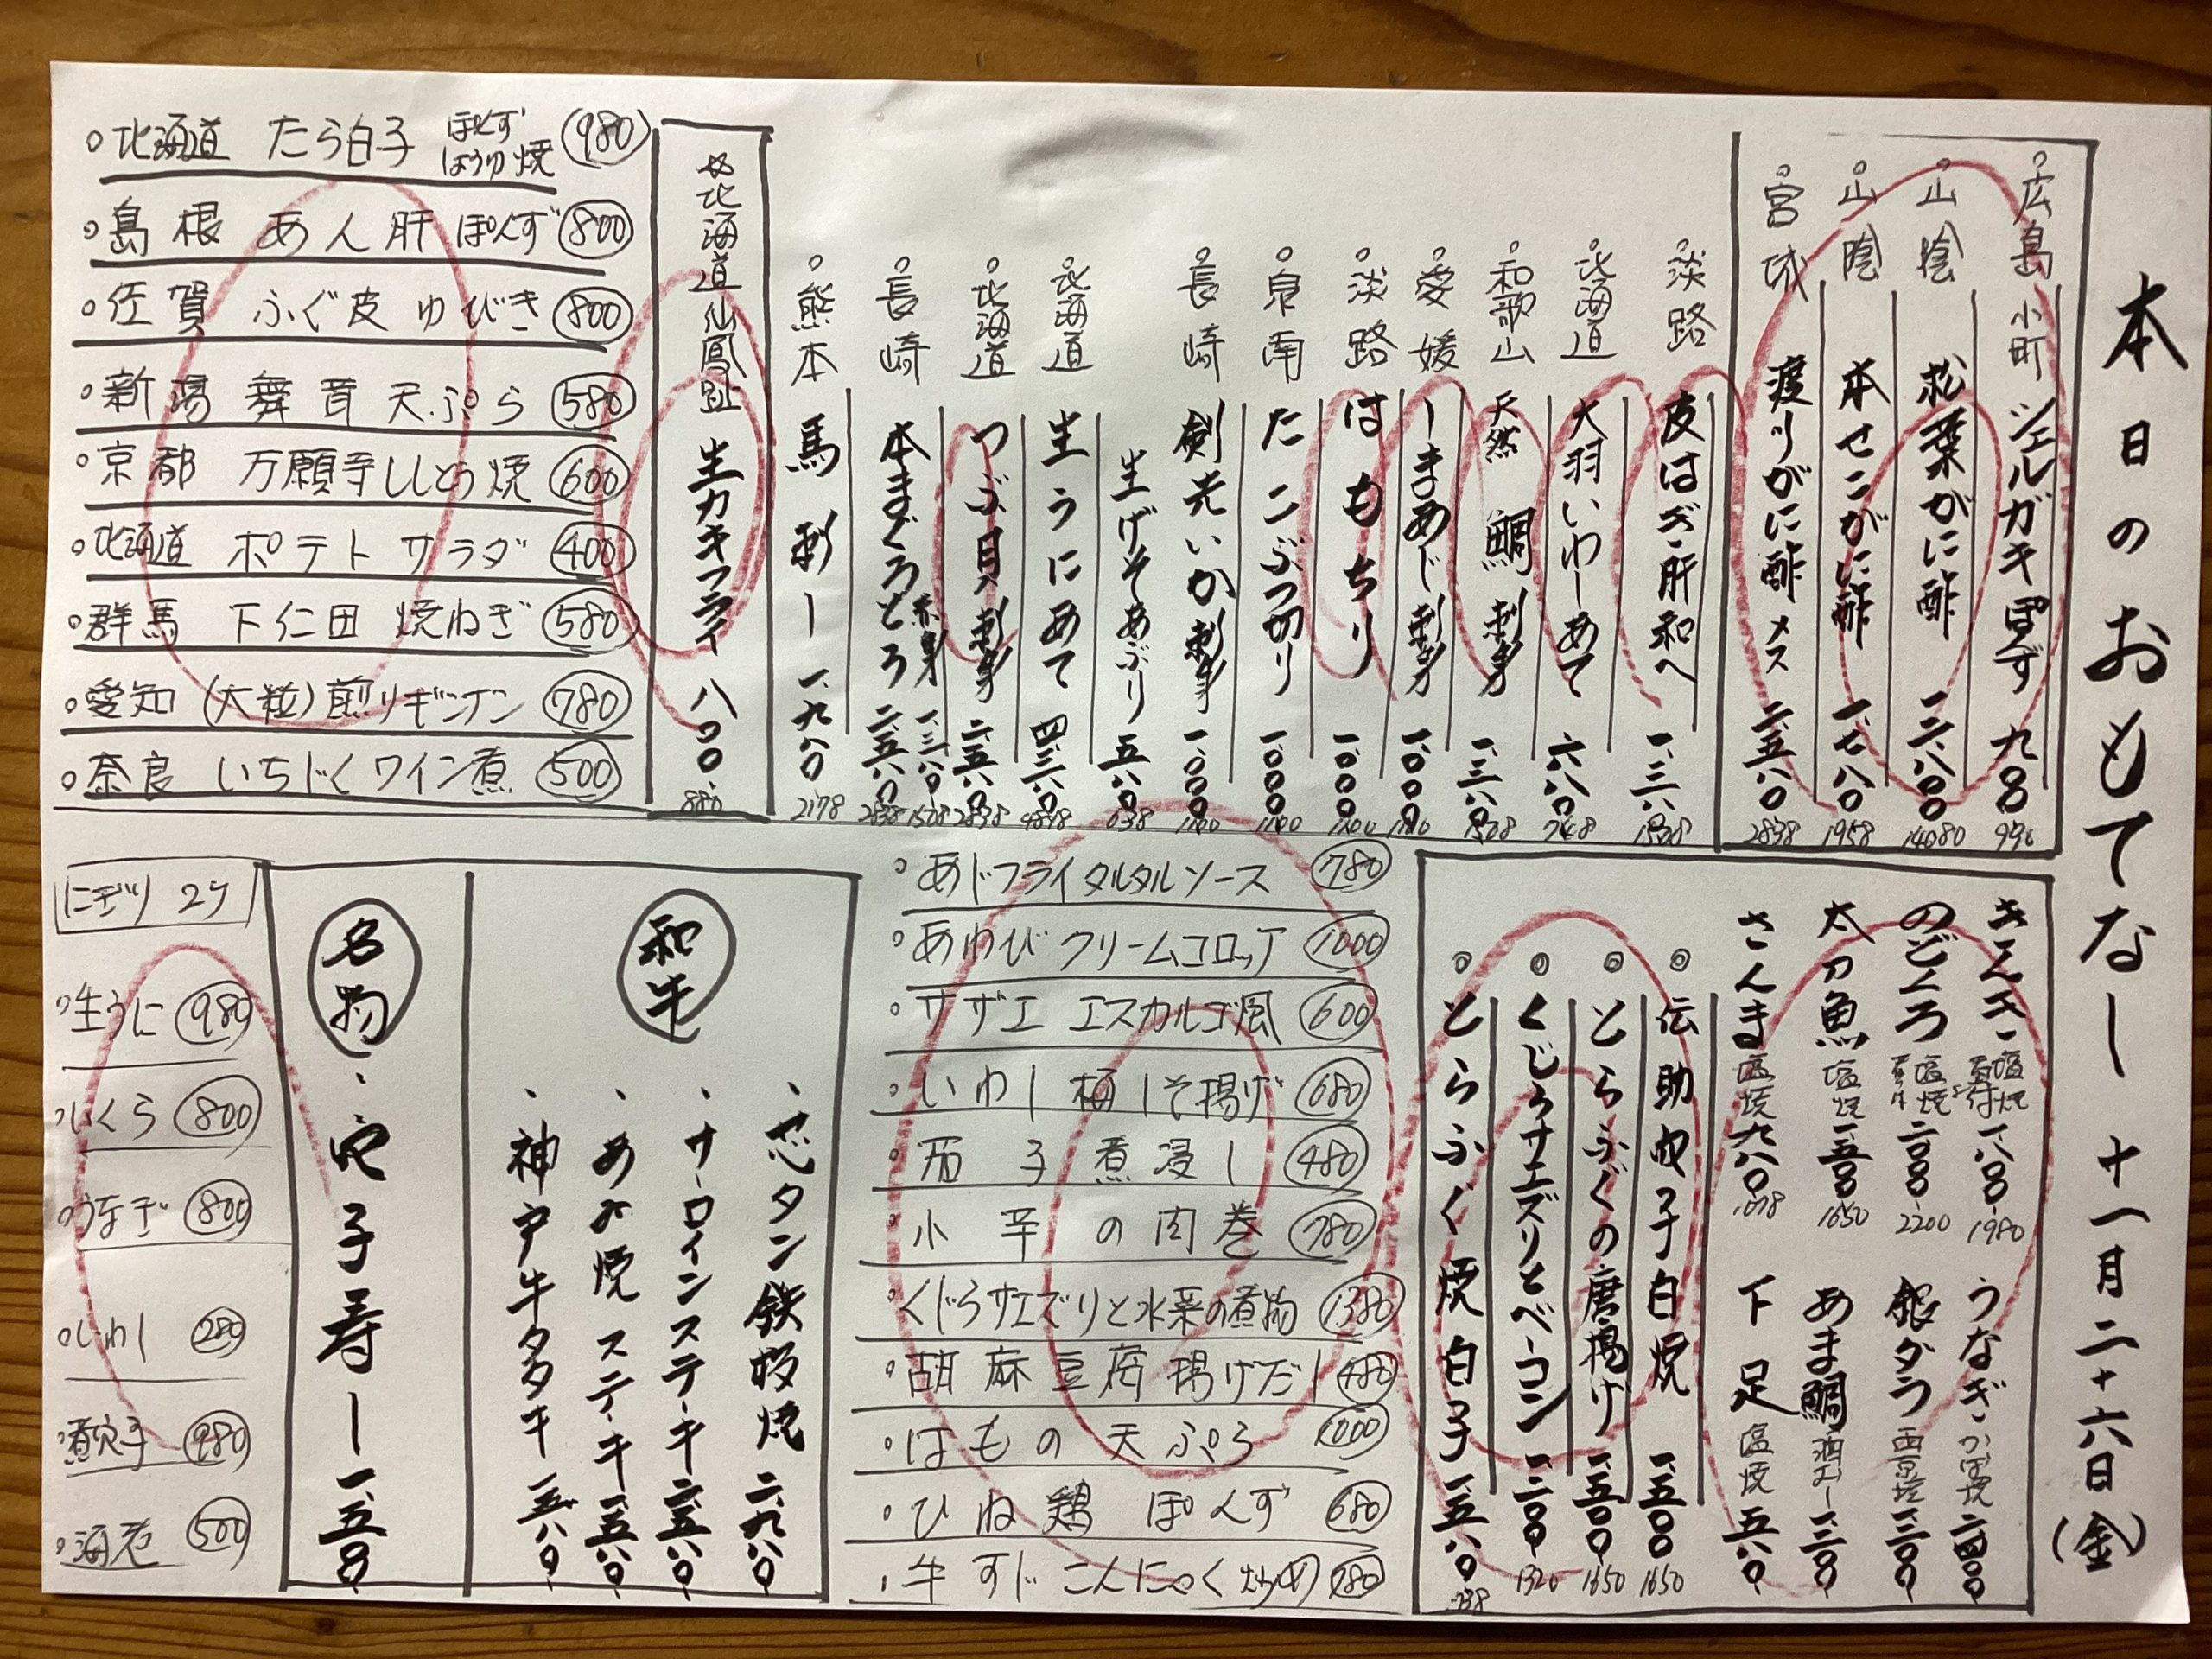 本日のおもてなし 十一月二十六日(金)
広島 小町 シェルガキ ぽんず 九〇〇 990
山陰 松葉がに酢 一二.八〇〇 14080
山陰 本せこがに酢 一.七八〇 1958
宮城 渡りがに酢 メス 二.五八〇 2838
淡路 皮はぎ肝和へ 一.三八〇 1518
北海道 大羽いわしあて 六八〇 748
和歌山 天然 鯛 刺身 一.三八〇 1518
愛媛 しまあじ 刺身 一.〇〇〇 1100
淡路 はもちり 一.〇〇〇 1100
泉南 たこぶつ切り 一.〇〇〇 1100
長崎 剣先いか刺身 一.〇〇〇 1100
生げそあぶり 五八〇 638
北海道 生うにあて 四.三八〇 4818
北海道 つぶ貝 刺身 二.五八〇 2838
長崎 本まぐろとろ 二.五八〇 2838
赤身 一.三八〇 1518
熊本 馬刺し 一.九八〇 2178
北海道仙鳳趾 生カキフライ 八〇〇 880
北海道 たら白子 ぽんず しょうゆ焼 980
島根 あん肝 ぽんず 800
佐賀 ふぐ皮 ゆびき 800
新潟 舞茸 天ぷら 580
京都 万願寺ししとう焼 600
北海道 ポテトサラダ 400
群馬 下仁田 焼ねぎ 580
愛知 (大粒)煎りギンナン 780
奈良 いちじくワイン煮 500
きんき 塩焼 煮付 一.八〇〇 1980
のどくろ 塩焼 煮付 二.〇〇〇 2200
太刀魚 塩焼 一.五〇〇 1650
さんま 塩焼 九八〇 1078
うなぎ かば焼 二.四〇〇
銀ダラ 西京焼 一.三〇〇
あま鯛 酒むし 一.三〇〇
下足 塩焼 五八〇
◎伝助穴子白焼 一.五〇〇 1650
◎とらふぐの唐揚げ 一.五〇〇 1650
◎くじらサエズリとベーコン 一.二〇〇 1320
◎とらふぐ焼白子 一.五八〇 1738
あじフライタルタルソース 780
あわびクリームコロッケ 1000
サザエ エスカルゴ風 600
いわし梅しそ揚げ 680
茄子煮浸し 480
小芋の肉巻 780
くじらサエズリと水菜の煮物 1380
胡麻豆腐揚げだし 480
はもの天ぷら 1000
ひね鶏 ぽんず 680
牛すじこんにゃく炒め 780
和牛
芯タン鉄板焼 二.九八〇
サーロインステーキ 二.五八〇
あみ焼ステーキ 一.五八〇
神戸牛タタキ 一.五八〇
名物
穴子寿し 一.五〇〇
にぎり 2ケ
生うに 980
いくら 800
うなぎ 800
いわし 280
煮穴子 980
海老 500